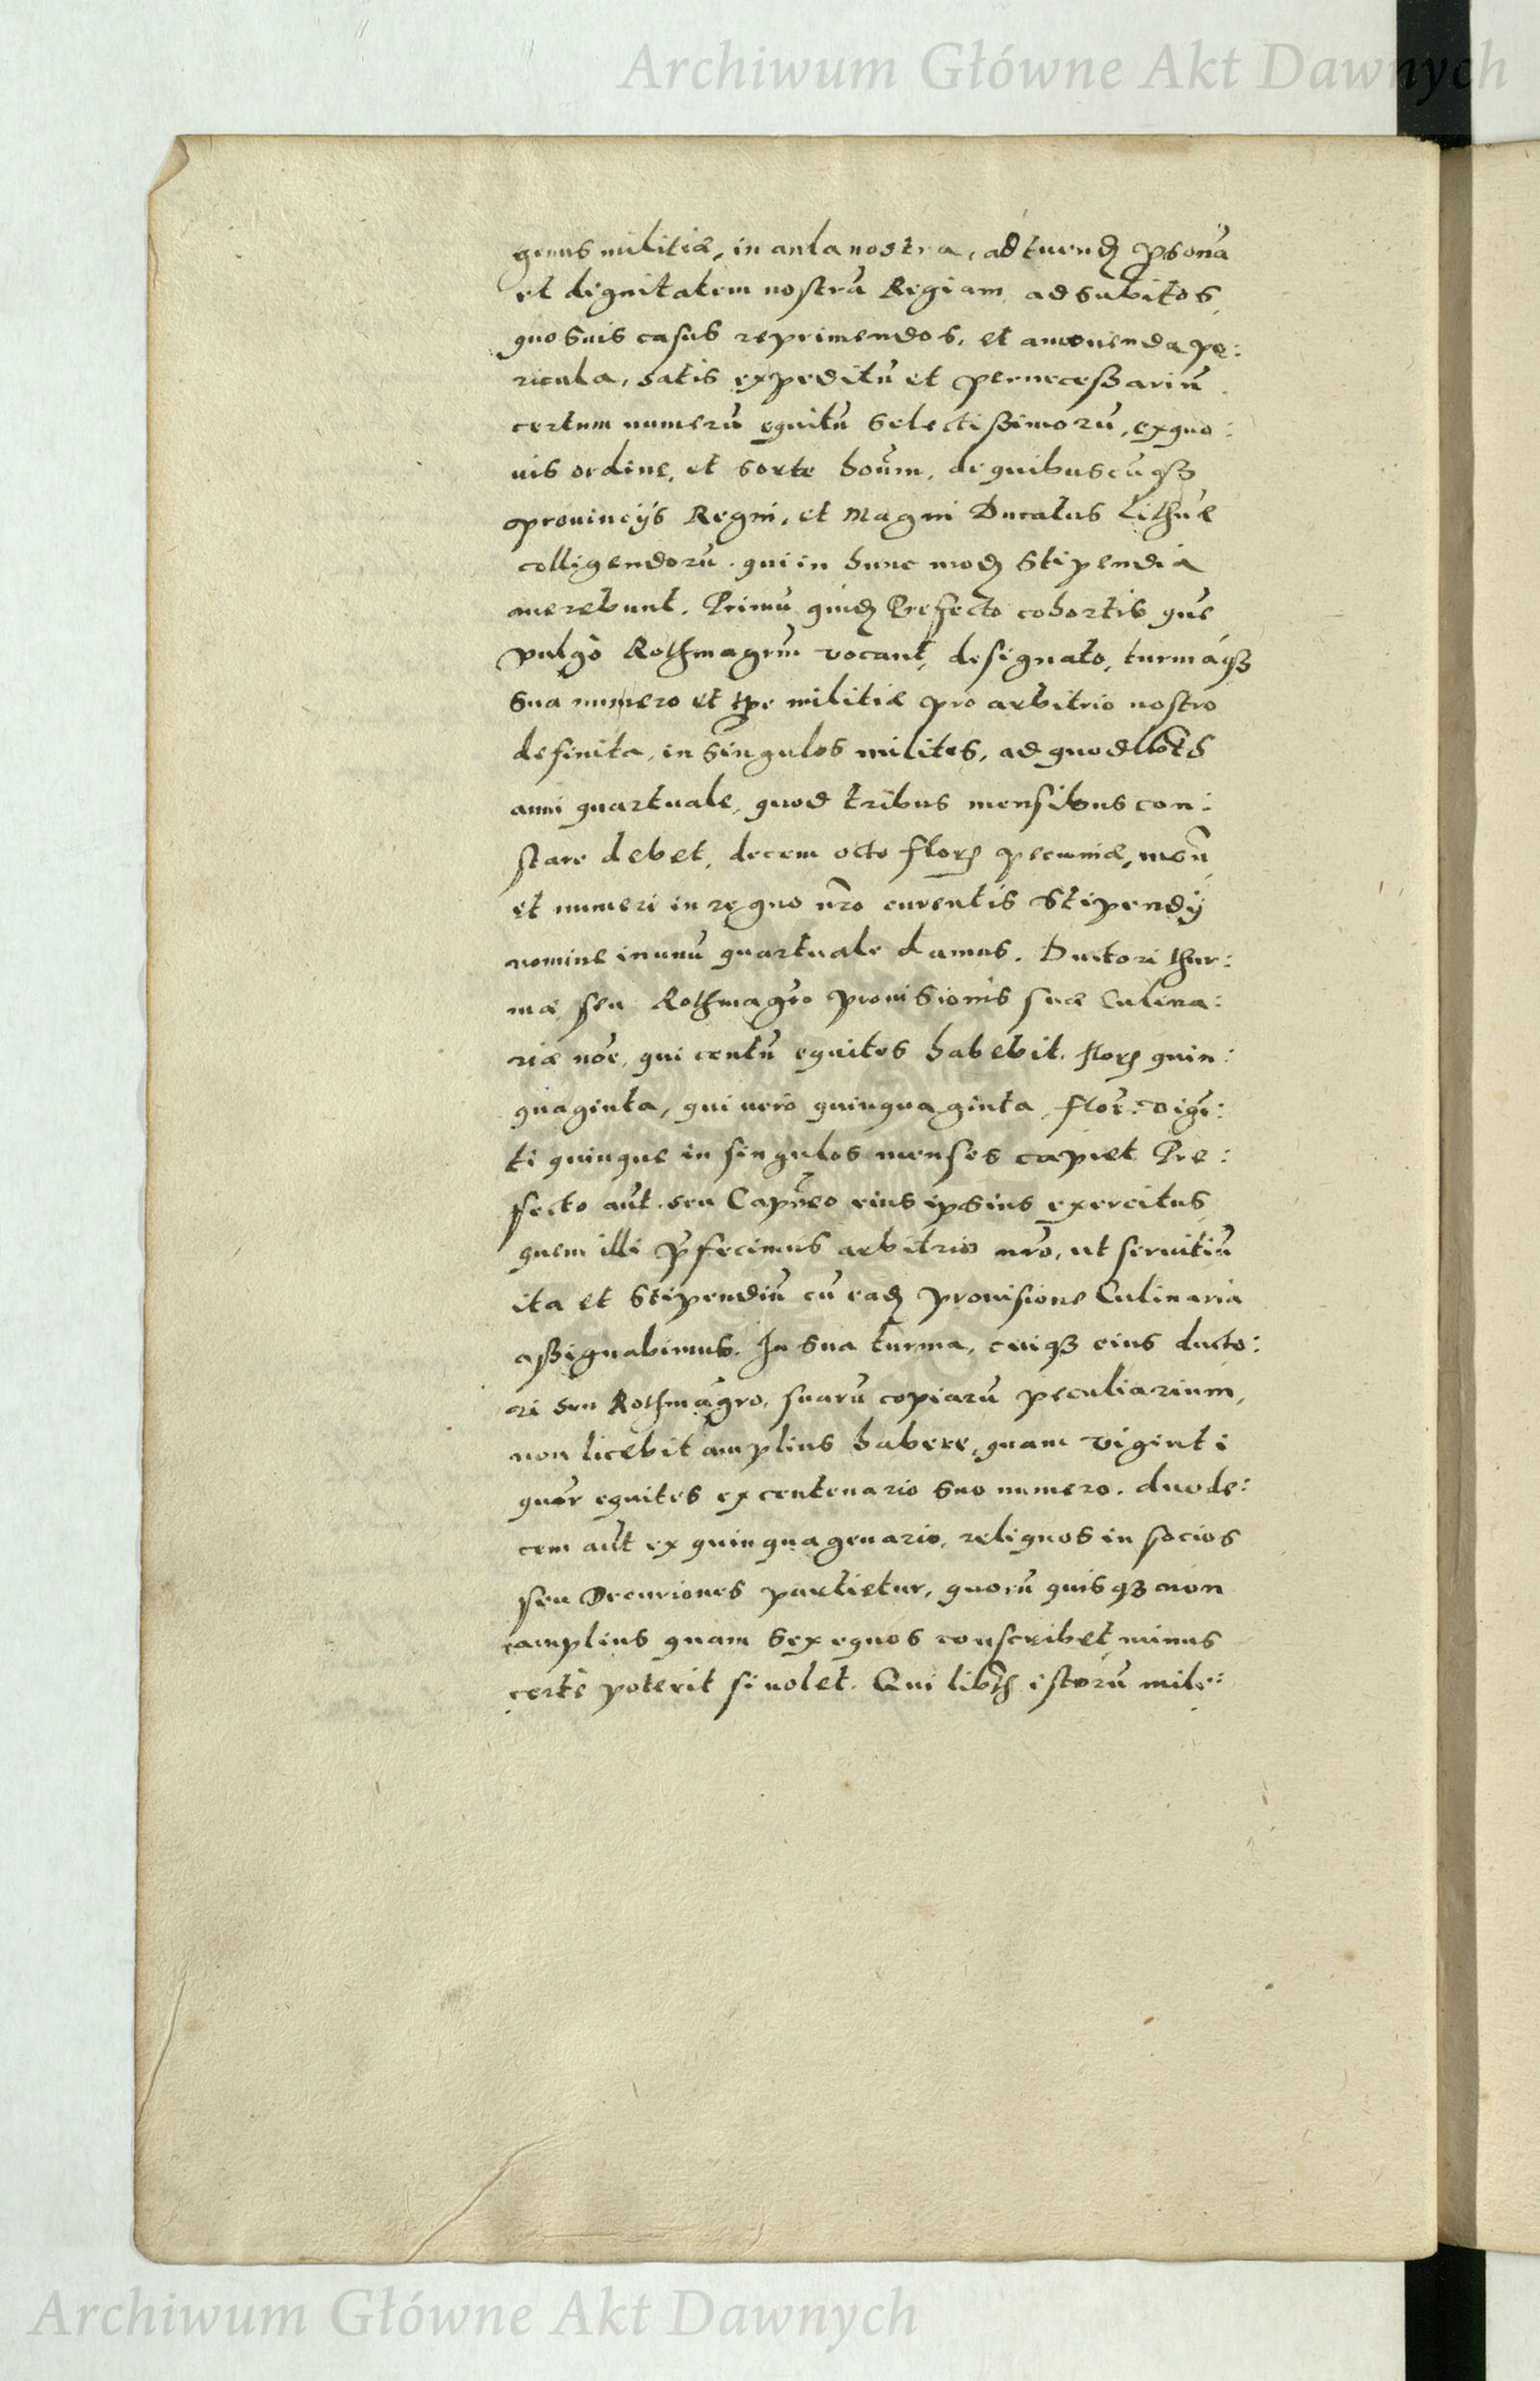 Archiwum Główne Akt Dawnych
genus militiæ, in aula nostra, ad tuendã psonã
et dignitatem nostrã Regiam, ad subitos
quosuis casus reprimendos, et amouenda pe:
ricula, satis expeditũ et pernecessariũ
certum numerũ equitũ selectissimorũ, ex quo:
uis ordine, et sorte hoĩum, de quibuscũq₃
prouincijs Regni, et Magni Ducatus Lithuæ
colligendorũ. qui in hunc modũ stipendia
merebunt. Primũ quidẽ Prefecto cohortis quẽ
vulgò Rothmagrũm vocant, designato, turmáq₃
sua numero et tpe militiæ pro arbitrio nostro
definita, in singulos milites, ad quodlibet
anni quartuale, quod tribus mensibus con:
stare debet, decem octo florẽ pecuniæ, mon̄
et numeri in regno nro curentis stipendij
nomine in unũ quartuale damus. Ductori thur:
mæ seu Rothmagro prouisionis suæ Culina:
riæ noĩe, qui centũ equites habebit. florẽ quin:
quaginta, qui uero quinquaginta, flor: vigĩ:
ti quinque in singulos menses capiet Pre:
fecto aũt. seu Capneo eius ipsius exercitus
quem illi p̃fecimus arbitrio nro, ut seruitiũ
ita et stipendiũ cũ eadẽ prouisione Culinaria
assignabimus. In sua turma, cuiq₃ eius ducto:
ri seu Rothmagro, suarũ copiarũ peculiarium,
non licebit amplius habere, quam viginti
quor equites ex centenario suo numero. duode:
cem aũt ex quinquagenario, reliquos in socios
seu Decuriones partietur, quorũ quisq₃ non
amplius quam sex equos conscribet, minus
certè poterit si uolet. Qui libet istorũ mile:
Archiwum Główne Akt Dawnych